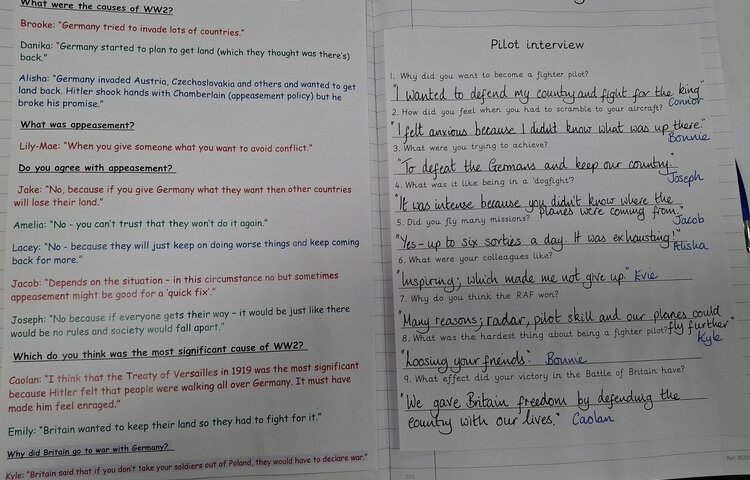 What were the causes of WW2?
Brooke: "Germany tried to invade lots of countries."
Danika: "Germany started to plan to get land (which they thought was there's)
back."
Alisha: "Germany invaded Austria, Czechoslovakia and others and wanted to get
land back. Hitler shook hands with Chamberlain (appeasement policy) but he
broke his promise."
What was appeasement?
Lily-Mae: "When you give someone what you want to avoid conflict."
Do you agree with appeasement?
Jake: "No, because if you give Germany what they want then other countries
will lose their land."
Amelia: "No - you can't trust that they won't do it again."
Lacey: "No - because they will just keep on doing worse things and keep coming
back for more."
Jacob: "Depends on the situation – in this circumstance no but sometimes
appeasement might be good for a 'quick fix'."
Joseph: "No because if everyone gets their way – it would be just like there
would be no rules and society would fall apart."
Which do you think was the most significant cause of WW2?
Caolan: "I think that the Treaty of Versailles in 1919 was the most significant
because Hitler felt that people were walking all over Germany. It must have
made him feel enraged."
Emily: "Britain wanted to keep their land so they had to fight for it."
Why did Britain go to war with Germany?
Kyle: "Britain said that if you don't take your soldiers out of Poland, they would have to declare war."
Pilot interview
1. Why did you want to become a fighter pilot?
"I wanted to defend my country and fight for the king"
Connor
2. How did you feel when you had to scramble to your aircraft?
"I felt anxious because I didn't know what was up there."
Bonnie
3. What were you trying to achieve?
"To defeat the Germans and keep our country."
Joseph
4. What was it like being in a 'dogfight'?
"It was intense because you didn't know where the
planes were coming from."
Jacob
5. Did you fly many missions?
"Yes - up to six sorties a day. It was exhausting!"
Alisha
6. What were your colleagues like?
"Inspiring; which made me not give up." Evie
7. Why do you think the RAF won?
"Many reasons; radar, pilot skill and our planes could
fly further"
Kyle
8. What was the hardest thing about being a fighter pilot?
"Loosing your friends." Bonnie
9. What effect did your victory in the Battle of Britain have?
"We gave Britain freedom by defending the
country with our lives." Caolan